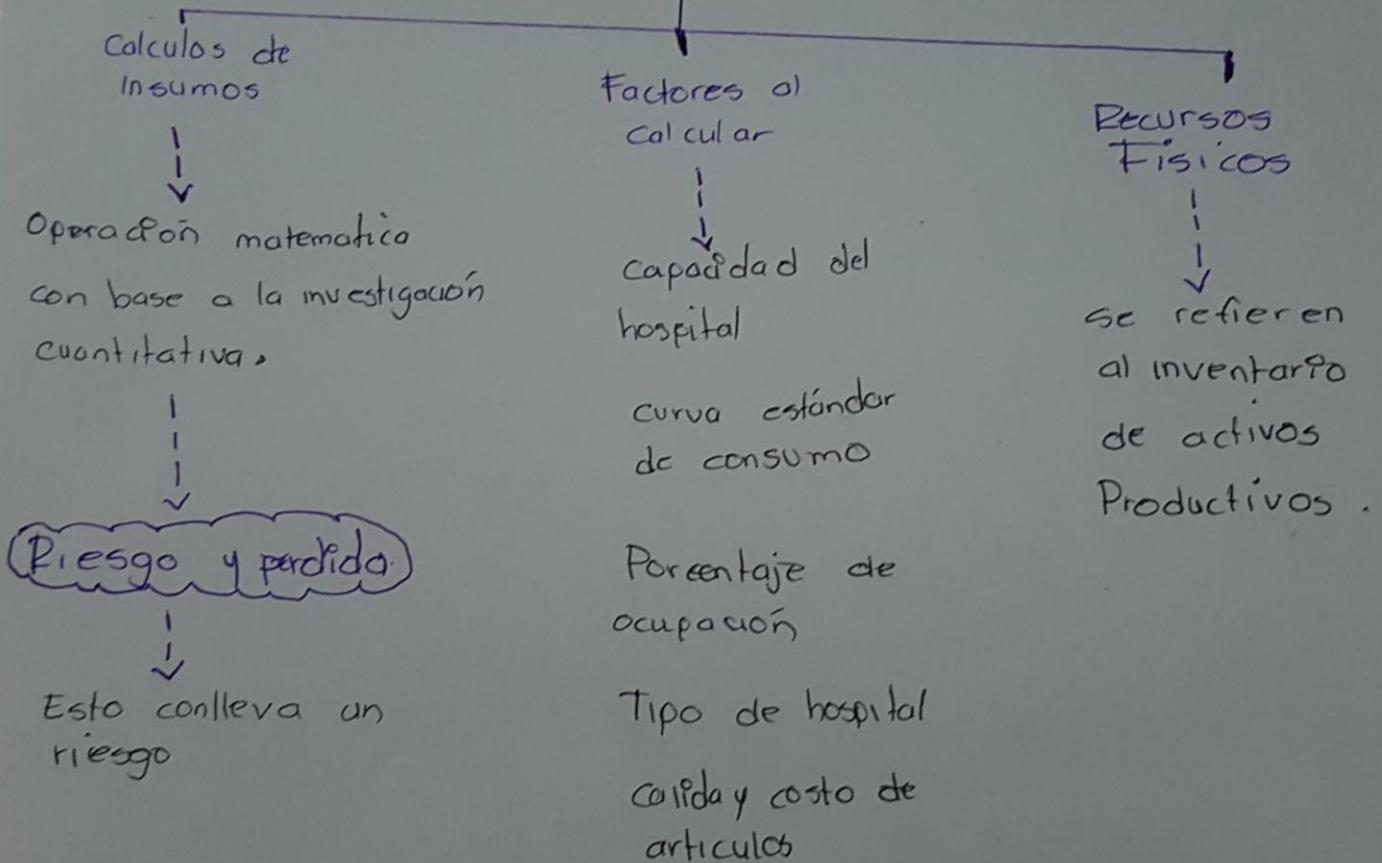 Calculos de
Insumos
Operación matematica
con base a la investigación
cuantitativa.
Riesgo y perdida.
Esto conlleva un
riesgo
Factores al
Calcular
Capacidad del
hospital
curva estándar
de consumo
Porcentaje de
ocupación
Tipo de hospital
calida y costo de
articulos
Recursos
Fisicos
se refieren
al inventario
de activos
Productivos.